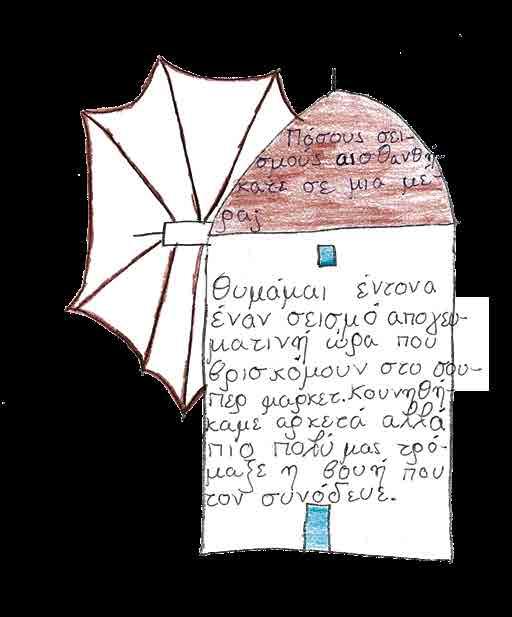 Πόσους σει-
σμούς αισθανθή-
κατε σε μια μέ-
ρα;
Θυμάμαι έντονα
έναν σεισμό απογευ-
ματινή ώρα που
βρισκόμουν στο σου-
περ μαρκετ. Κουνηθή-
καμε αρκετά αλλά
πιο πολύ μας τρό-
μαξε η βουή που
τον συνόδευε.